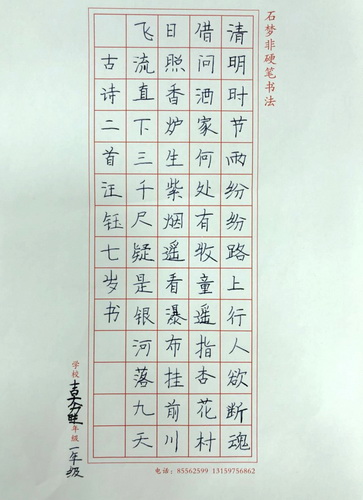 石梦非硬笔书法
清明时节雨纷纷路上行人欲断魂
借问洒家何处有牧童遥指杏花村
日照香炉生柴烟遥看瀑布挂前川
飞流直下三千尺疑是银河落九天
古诗二首汪钰七岁书
学校
年级 一年级
电话：85562599 13159756862